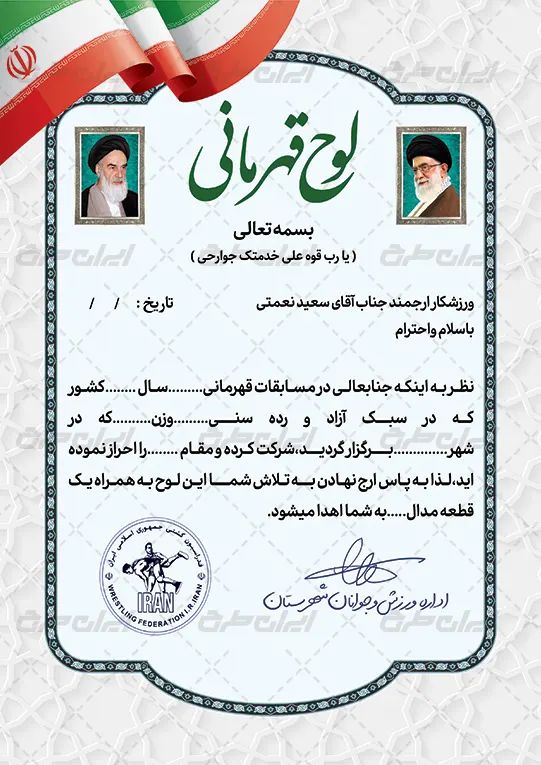 لوح قهرمانی
بسمه تعالی
( یا رب قوه علی خدمتک جوارحی )
ورزشکار ارجمند جناب آقای سعید نعمتی تاریخ : / /
باسلام واحترام
نظر به اینکه جنابعالی در مسابقات قهرمانی.........سال ........کشور
که در سبک آزاد و رده سنی.........وزن..........که در
شهر..............برگزار گردید،شرکت کرده و مقام ........را احراز نموده
اید،لذا به پاس ارج نهادن به تلاش شما این لوح به همراه یک
قطعه مدال.....به شما اهدا میشود.
اداره ورزش و جوانان شهرستان
فدراسیون کشتی جمهوری اسلامی ایران
IRAN
WRESTLING FEDERATION I.R.IRAN
ایران طرح